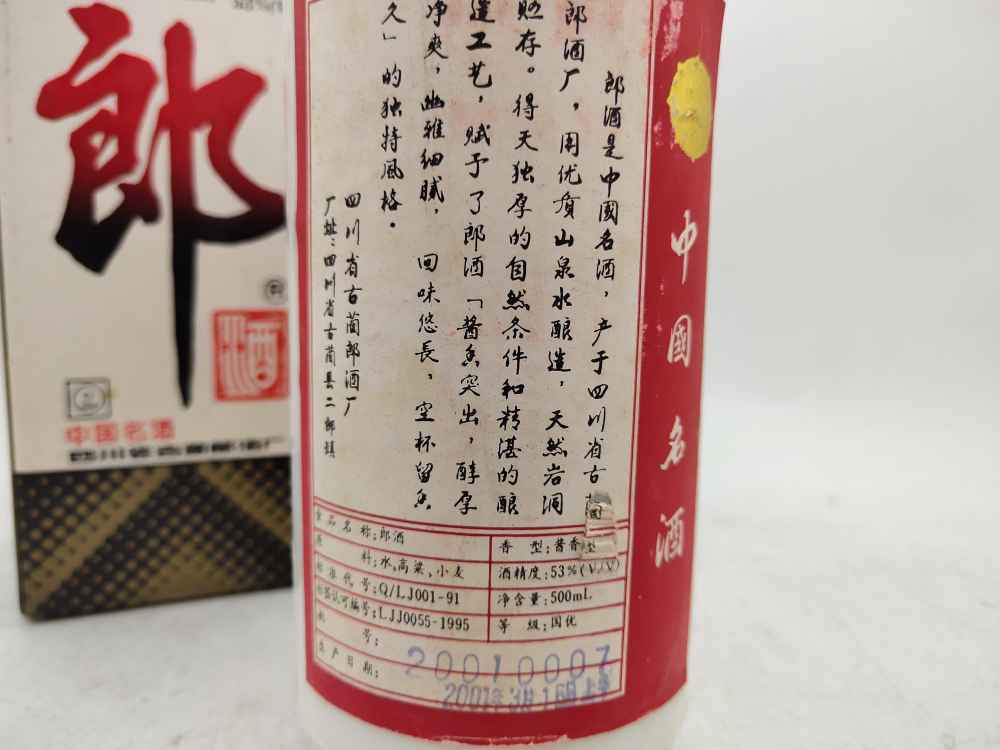 郎
酒
中国名酒
郎酒是中國名酒，产于四川省古
郎酒厂，用优质山泉水酿造，天然岩洞
贮存。得天独厚的自然条件和精湛的酿
造工艺，赋予了郎酒「酱香突出，醇厚
净爽，幽雅细腻，回味悠長，空杯留香
久」的独特風格。
四川省古蔺郎酒厂
厂址：四川省古蔺县二郎镇
食品名称：郎酒
香 型：酱香型
料：水、高粱、小麦
酒精度：53%(V/V)
标准代号：Q/LJ001-91
净含量：500mL
标签认可编号：LJJ0055-1995
等 级：国优
号：
20010007
生产日期：
2001年3月16日
中國名酒